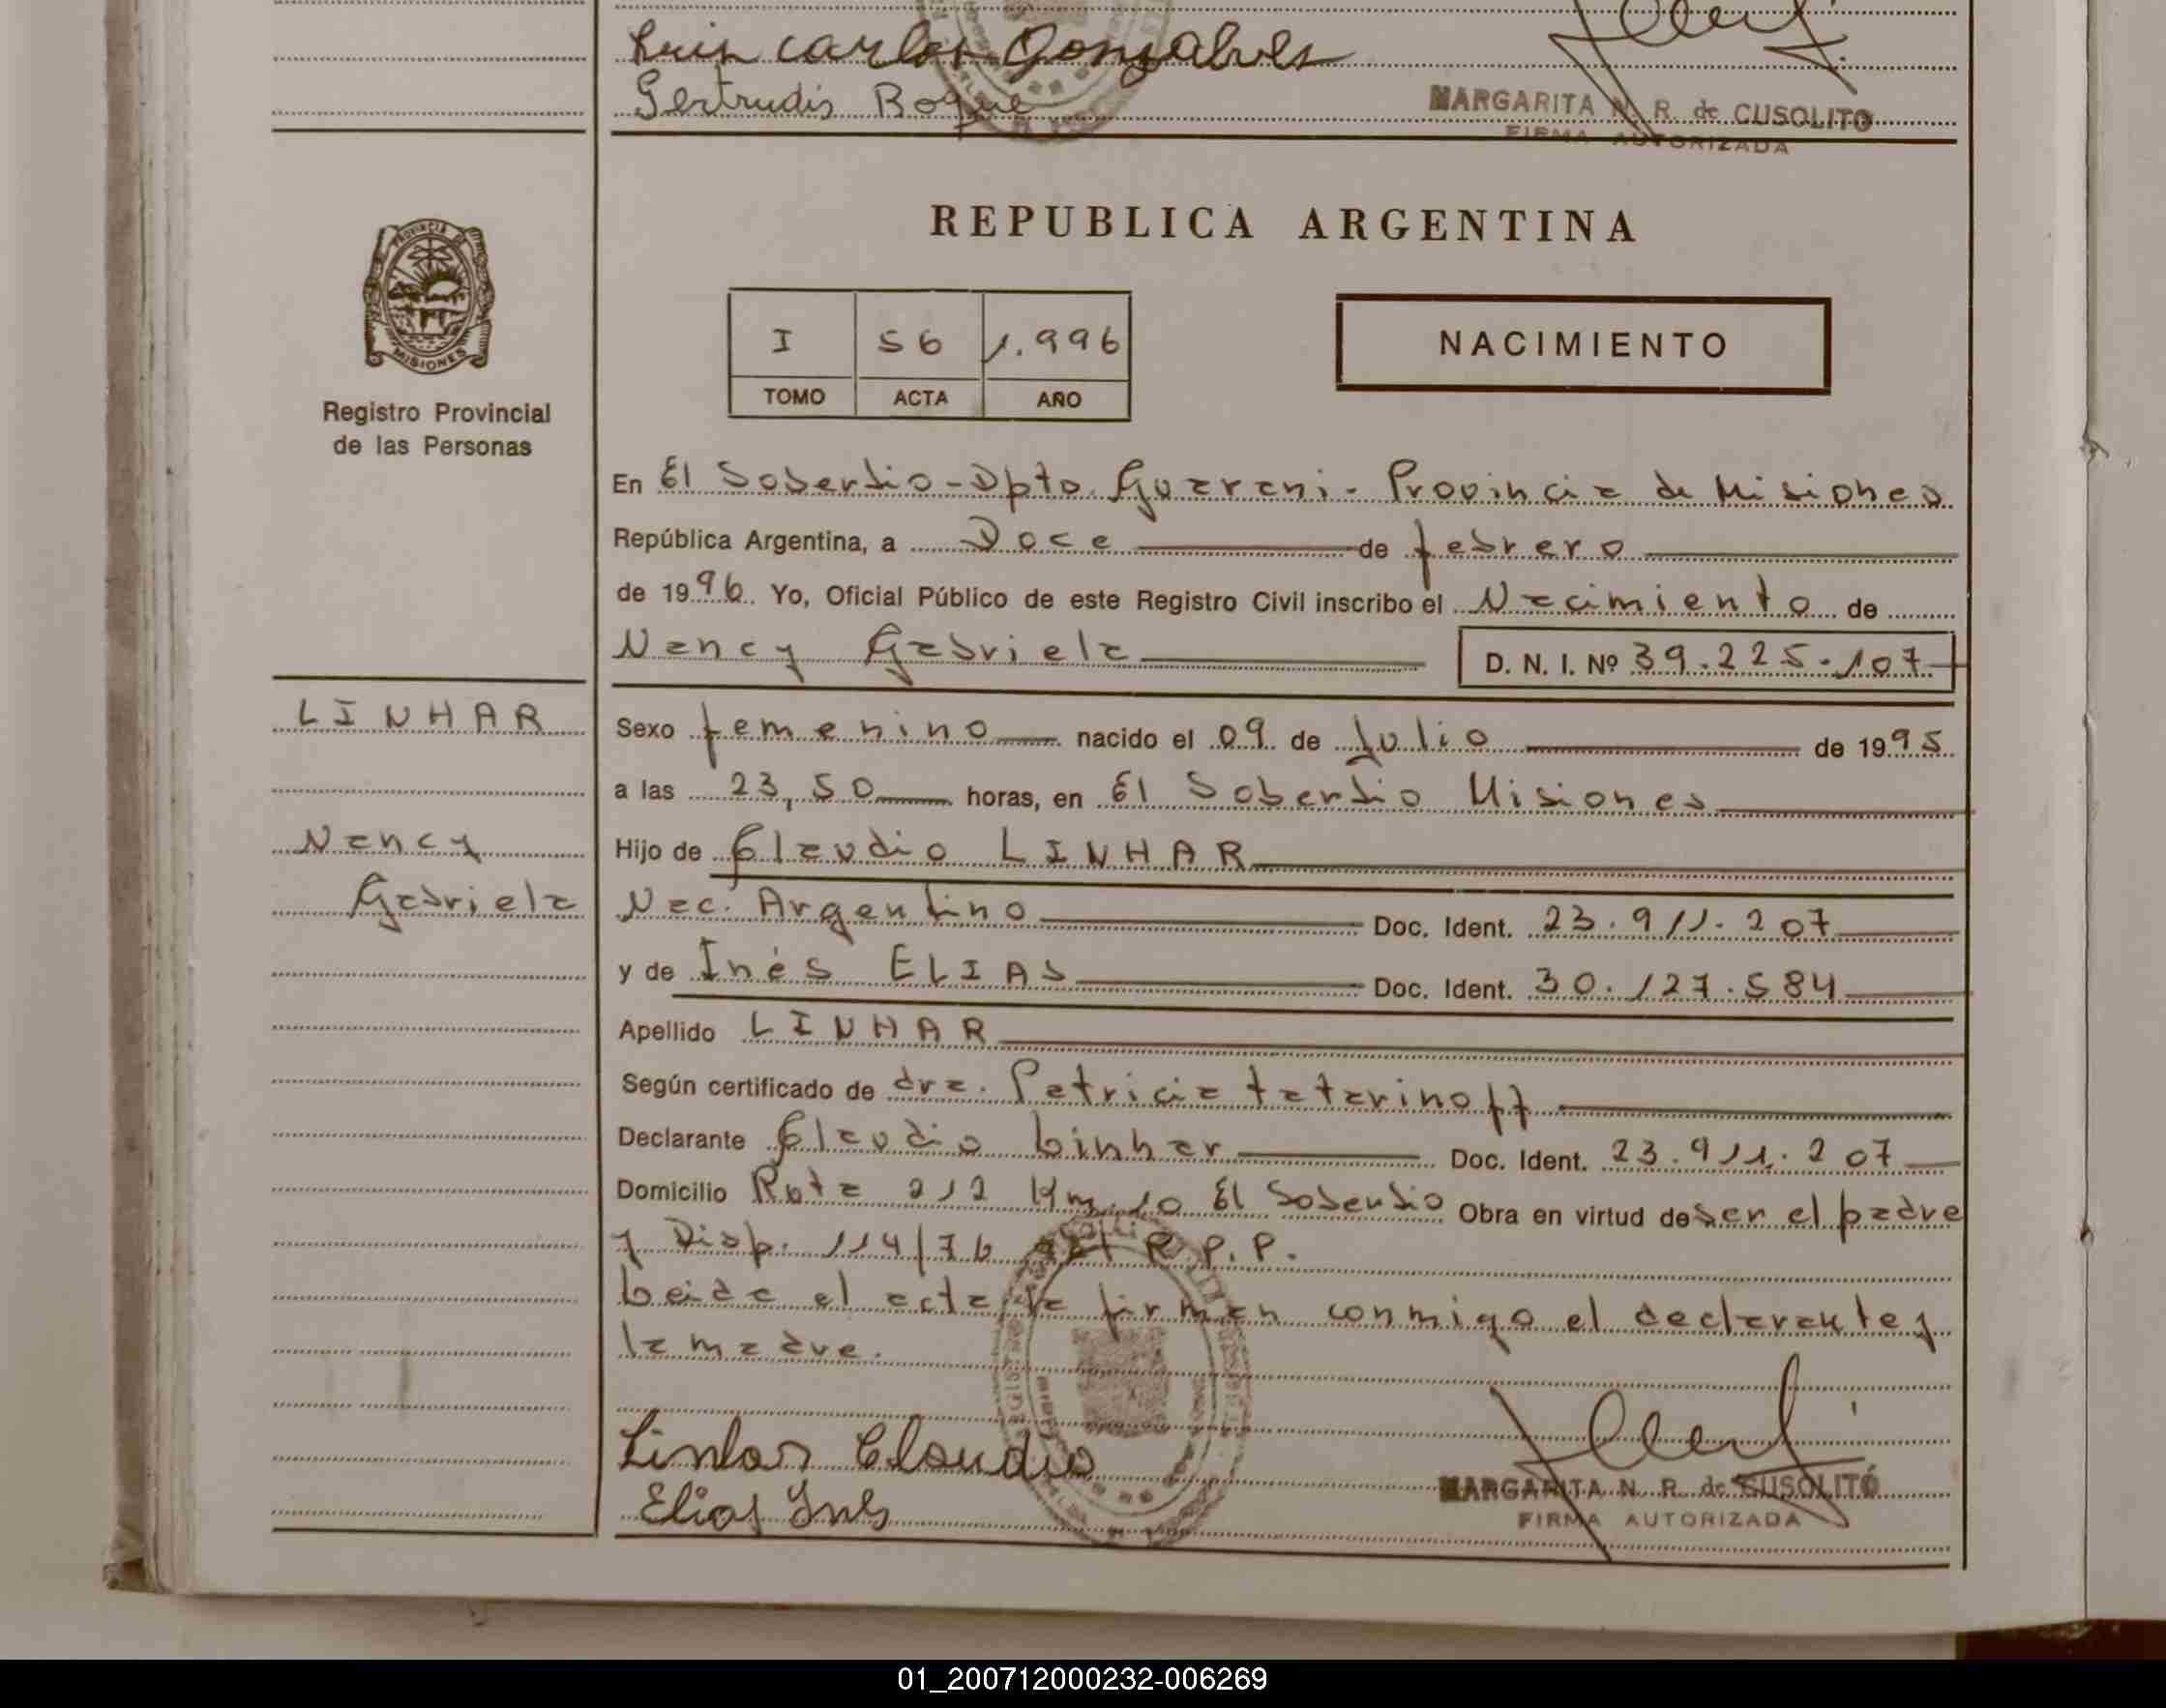 Luis Carlos Gonsalves
Gertrudis Roque
MARGARITA N. R. de CUSOLITO
FIRMA AUTORIZADA
REPUBLICA ARGENTINA
PROVINCIA DE
MISIONES
Registro Provincial
de las Personas
I 56 1.996
TOMO ACTA AÑO
NACIMIENTO
En El Soberbio - Dpto. Guarani - Provincia de Misiones
República Argentina, a Doce de febrero
de 1996. Yo, Oficial Público de este Registro Civil inscribo el Nacimiento de
Nancy Gabriela D. N. I. Nº 39.225.107
LINHAR
Nancy
Gabriela
Sexo femenino nacido el 09 de Julio de 1995
a las 23,50 horas, en El Soberbio Misiones
Hijo de Claudio LINHAR
Nac. Argentino Doc. Ident. 23.911.207
y de Inés ELIAS Doc. Ident. 30.127.584
Apellido LINHAR
Según certificado de dra. Patricia Tatarinoff
Declarante Claudio Linhar Doc. Ident. 23.911.207
Domicilio Ruta 212 Km. 10 El Soberbio Obra en virtud de ser el padre
y Disp. 114/76 del R.P.P.
Leida el acta la firman conmigo el declarante y
la madre.
Linhar Claudio
Elias Ines
MARGARITA N. R. de CUSOLITO
FIRMA AUTORIZADA
01_200712000232-006269